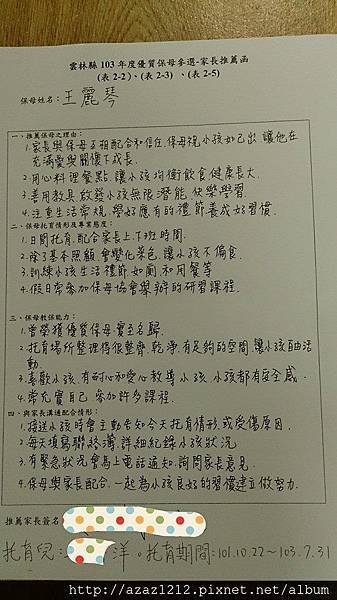 雲林縣 103 年度優質保母參選-家長推薦函
(表 2-2)、(表 2-3) 、(表 2-5)
保母姓名：王麗琴
一、推薦保母之理由：
1.家長與保母互相配合和信任.保母視小孩如己出 讓他在
充滿愛與關懷下成長.
2.用心料理餐點.讓小孩均衡飲食健康長大.
3.善用教具.啟發小孩無限潛能.快樂學習.
4.注重生活常規.學好應有的禮節養成好習慣.
二、保母托育情形及專業態度：
1.日間托育.配合家長上.下班時間.
2.除了基本照顧.會變化菜色.讓小孩不偏食.
3.訓練小孩生活禮節.如廁和用餐等
4.假日常參加保母協會舉辦的研習課程.
三、保母教保能力：
1.曾榮獲優質保母.實至名歸.
2.托育場所整理得很整齊.乾淨.有足夠的空間.讓小孩自由活
動.
3.喜歡小孩.有耐心和愛心教導小孩.小孩都有安全感.
4.常充實自己.參加許多課程.
四、與家長溝通配合情形：
1.接送小孩時會主動告知今天托育情形.或受傷原因.
2.每天填寫聯絡簿.詳細紀錄小孩狀況.
3.有緊急狀況會馬上電話通知.詢問家長意見.
4.保母與家長配合.一起為小孩良好的習慣建立做努力.
推薦家長簽名
托育兒: 洋。托育期間:101.10.22～103.7.31
http://azaz1212.pixnet.net/album